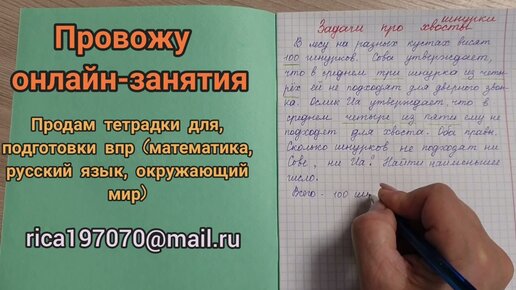 Провожу
онлайн-занятия
Продам тетрадки для,
подготовки впр (математика,
русский язык, окружающий
мир)
rica197070@mail.ru
шнурки
Задачи про хвосты
В лесу на разных кустах висят
100 шнурков. Сова утверждает,
что в среднем три шнурка из четы-
рёх ей не подходят для дверного звон-
ка. Ослик Иа утверждает, что в
среднем четыре из пяти ему не
подходят для хвоста. Оба правы.
Сколько шнурков не подходят ни
Сове, ни Иа? Найти наименьшее
число.
Всего - 100 шн